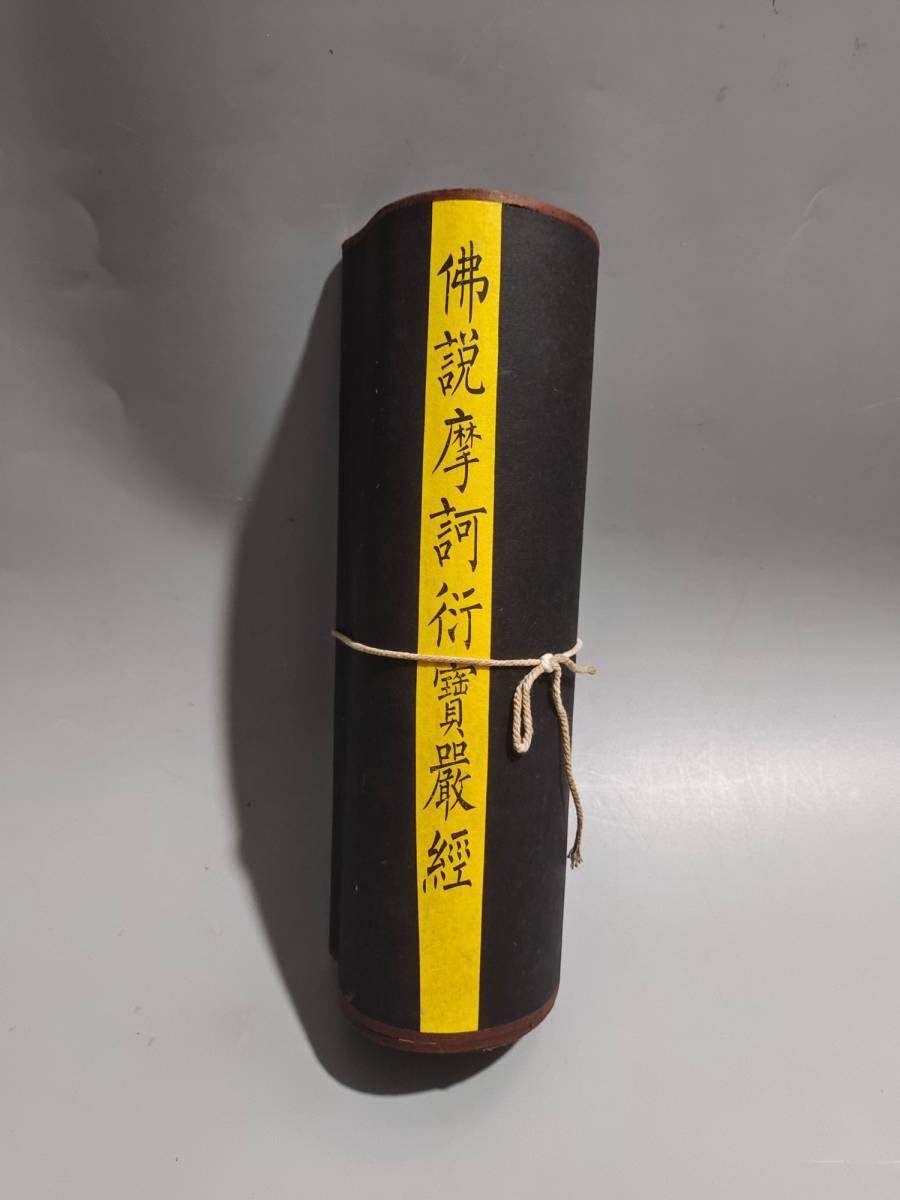 佛說摩訶衍寶嚴經